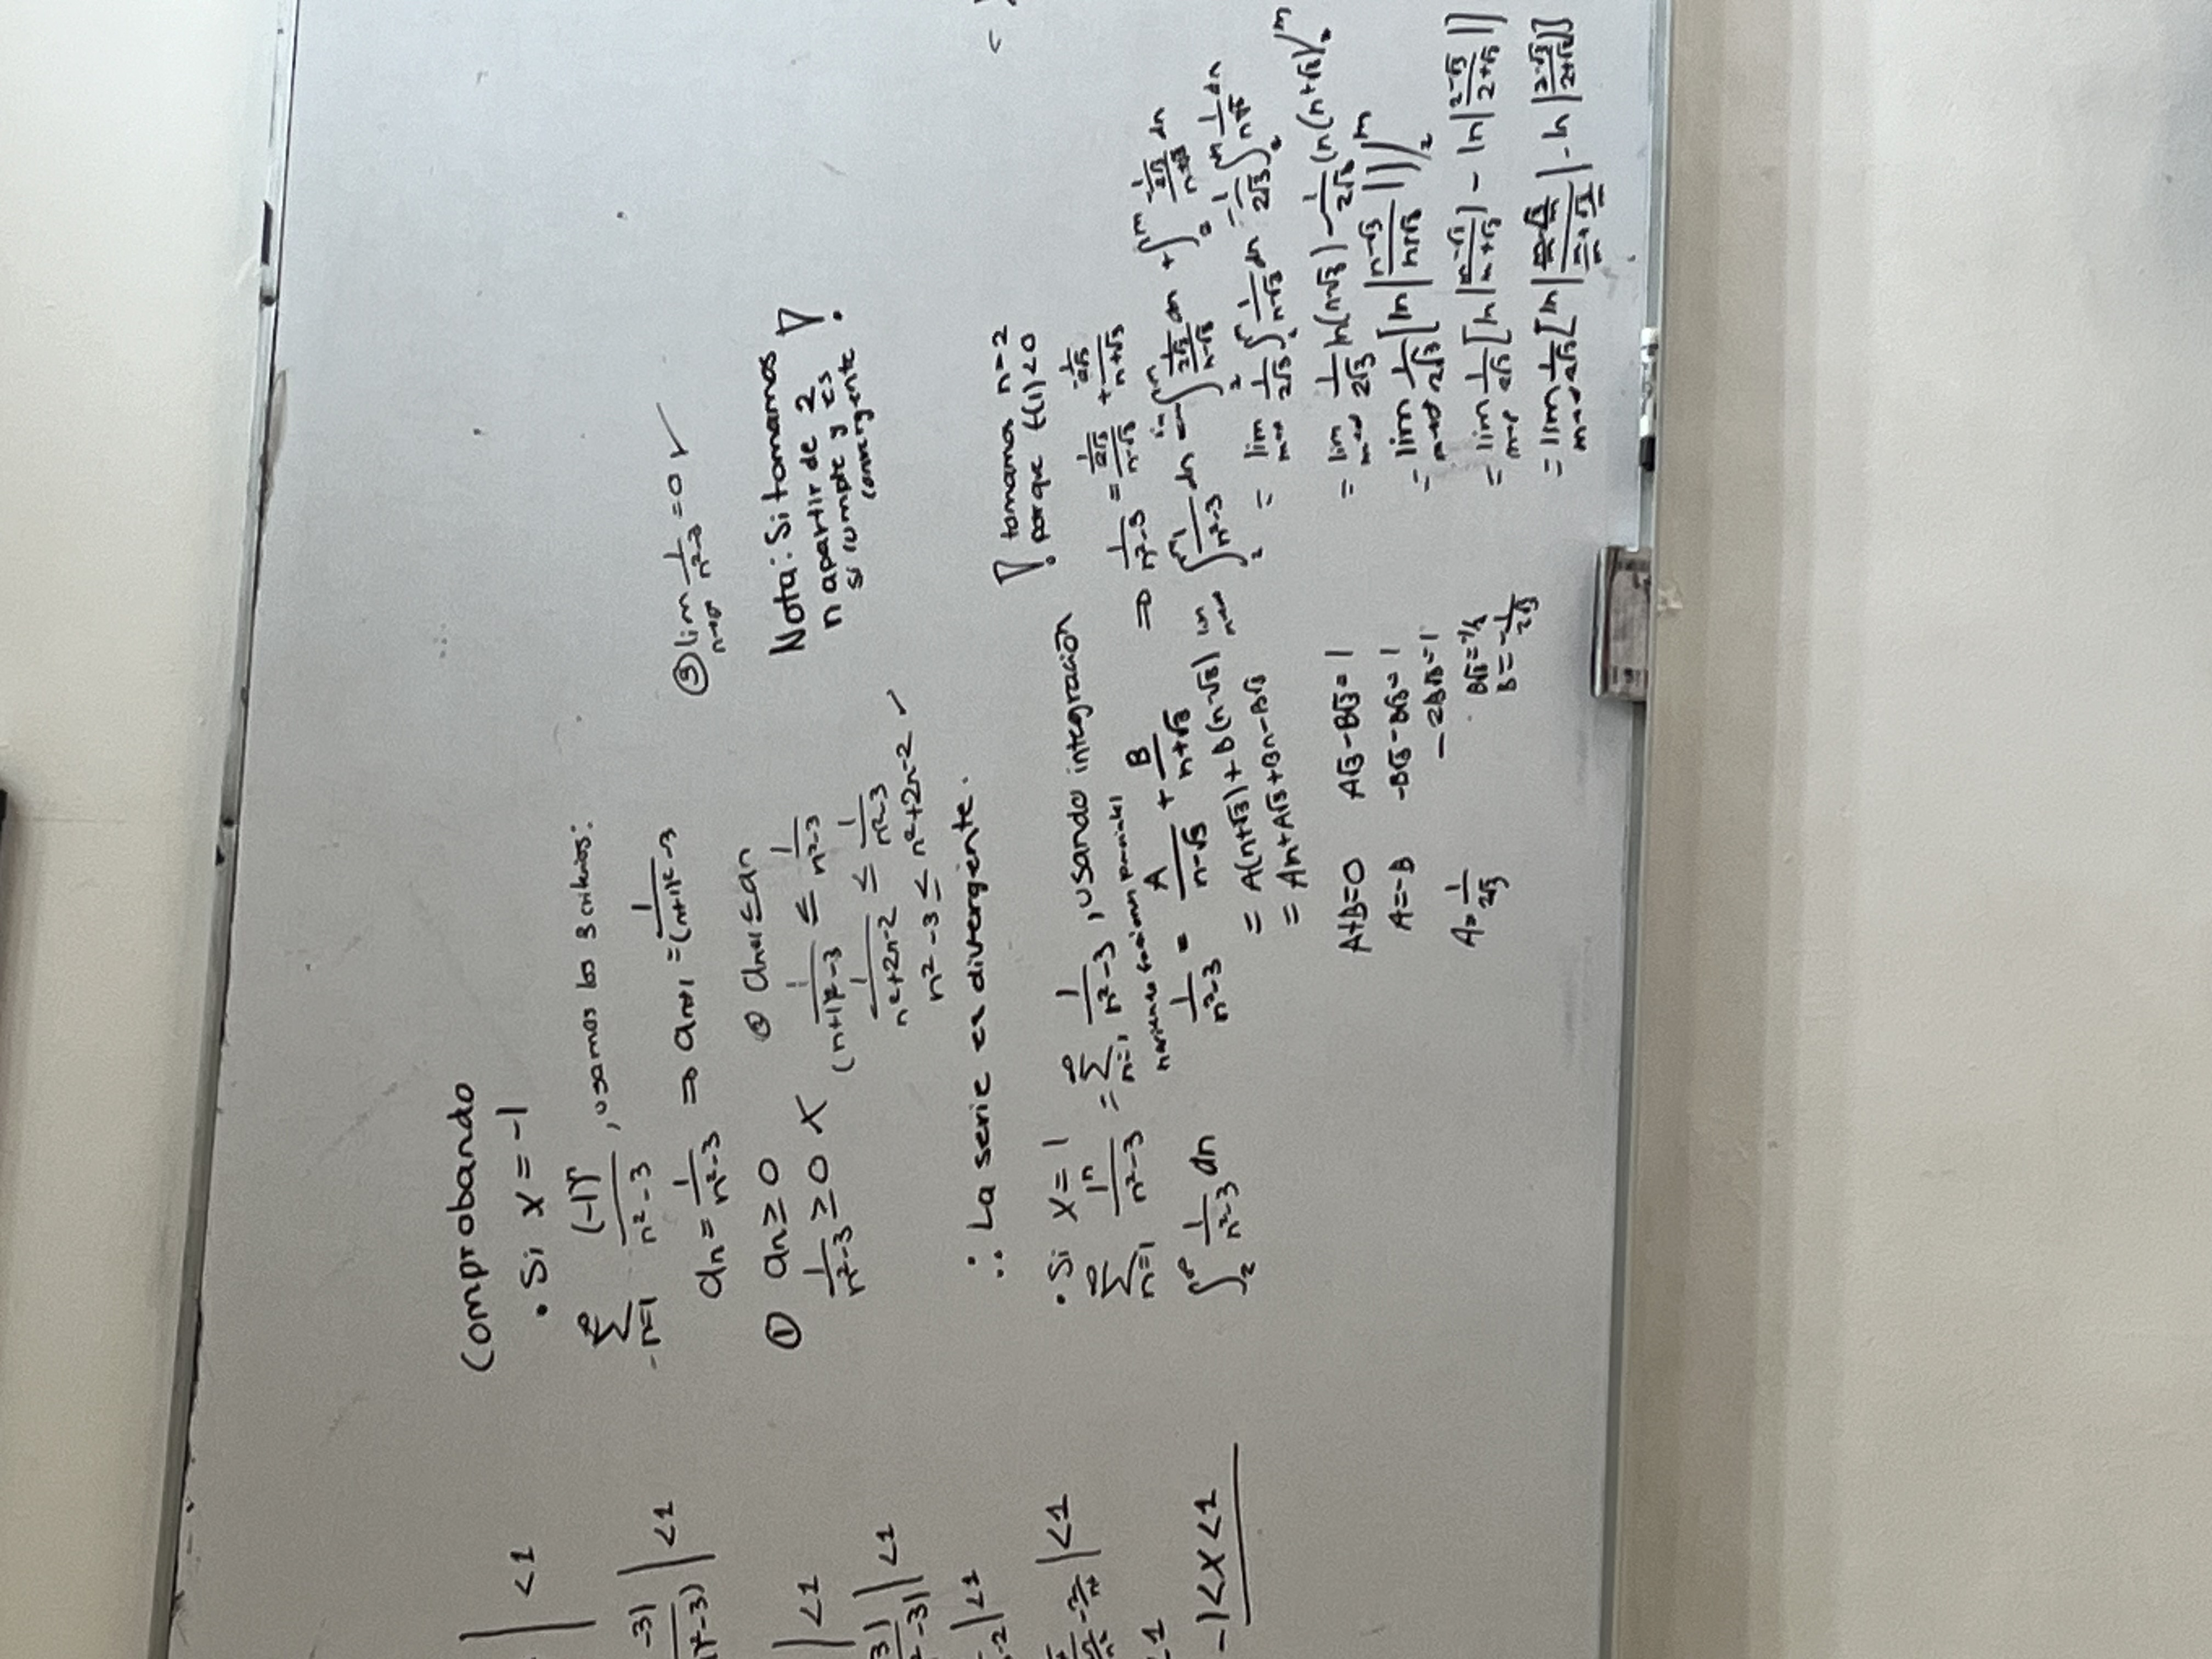 | < 1
-3) | < 1
)²-3)
| < 1
3) | < 1
²-3)
-2 | < 1
| < 1
< 1
-1 < x < 1
Comprobando
• Si x = -1
∞ Σ n=1 (-1)ⁿ / n²-3 , usamos los 3 criterios:
an = 1/n²-3 ⇒ an+1 = 1/(n+1)²-3
① an ≥ 0
1/n²-3 ≥ 0 X
② an+1 ≤ an
1/(n+1)²-3 ≤ 1/n²-3
1/n²+2n-2 ≤ 1/n²-3
n²-3 ≤ n²+2n-2 ✓
③ lim n→∞ 1/n²-3 = 0 ✓
Nota: Si tomamos
n apartir de 2
si cumple y es
convergente !
∴ La serie es divergente.
• Si x = 1
∞ Σ n=1 1ⁿ/n²-3 = ∞ Σ n=1 1/n²-3 , usando integración
! tomamos n=2
porque f(1)<0
∫₂^∞ 1/n²-3 dn
1/n²-3 = A/n-√3 + B/n+√3
= A(n+√3) + B(n-√3)
= An+A√3+Bn-B√3
A+B=0 A√3-B√3=1
A=-B -B√3-B√3=1
-2B√3=1
A= 1/2√3
B=-1/2√3
⇒ 1/n²-3 = 1/2√3 / n-√3 + -1/2√3 / n+√3
lim m→∞ ∫₂^m 1/n²-3 dn = lim ∫₂^m 1/2√3 / n-√3 dn + ∫₂^m -1/2√3 / n+√3 dn
= lim m→∞ 1/2√3 ∫₂^m 1/n-√3 dn - 1/2√3 ∫₂^m 1/n+√3 dn
= lim m→∞ 1/2√3 ln(n-√3) - 1/2√3 (n(n+√3) |₂^m
= lim m→∞ 1/2√3 [ln | n-√3 / n+√3 |] |₂^m
= lim m→∞ 1/2√3 [ln | m-√3 / m+√3 ) - ln | 2-√3 / 2+√3 |]
= lim m→∞ 1/2√3 [ln | - ln | 2-√3 / 2+√3 |]